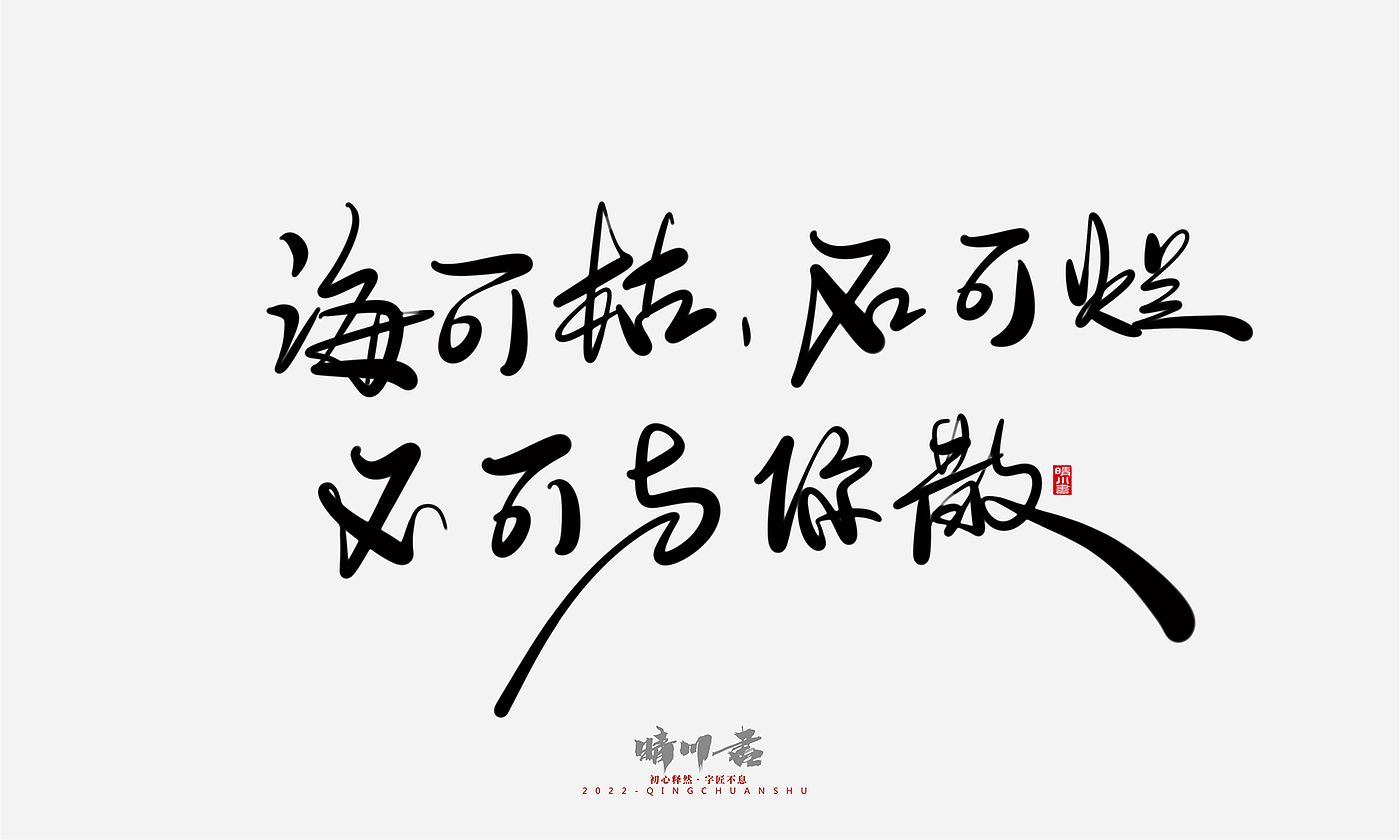 海可枯、石可烂
不可与你散
晴川書
晴川書
初心释然·字匠不息
2022-QINGCHUANSHU